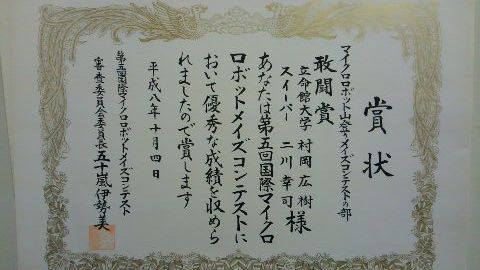 賞状
マイクロロボット山登りメイズコンテストの部
敢闘賞
立命館大学 村岡広樹
スイーパー 二川幸司 様
あなたは第五回国際マイクロ
ロボットメイズコンテストに
おいて優秀な成績を収めら
れましたので賞します
平成八年十月四日
第五回国際マイクロロボットメイズコンテスト
審査委員会委員長 五十嵐伊勢美